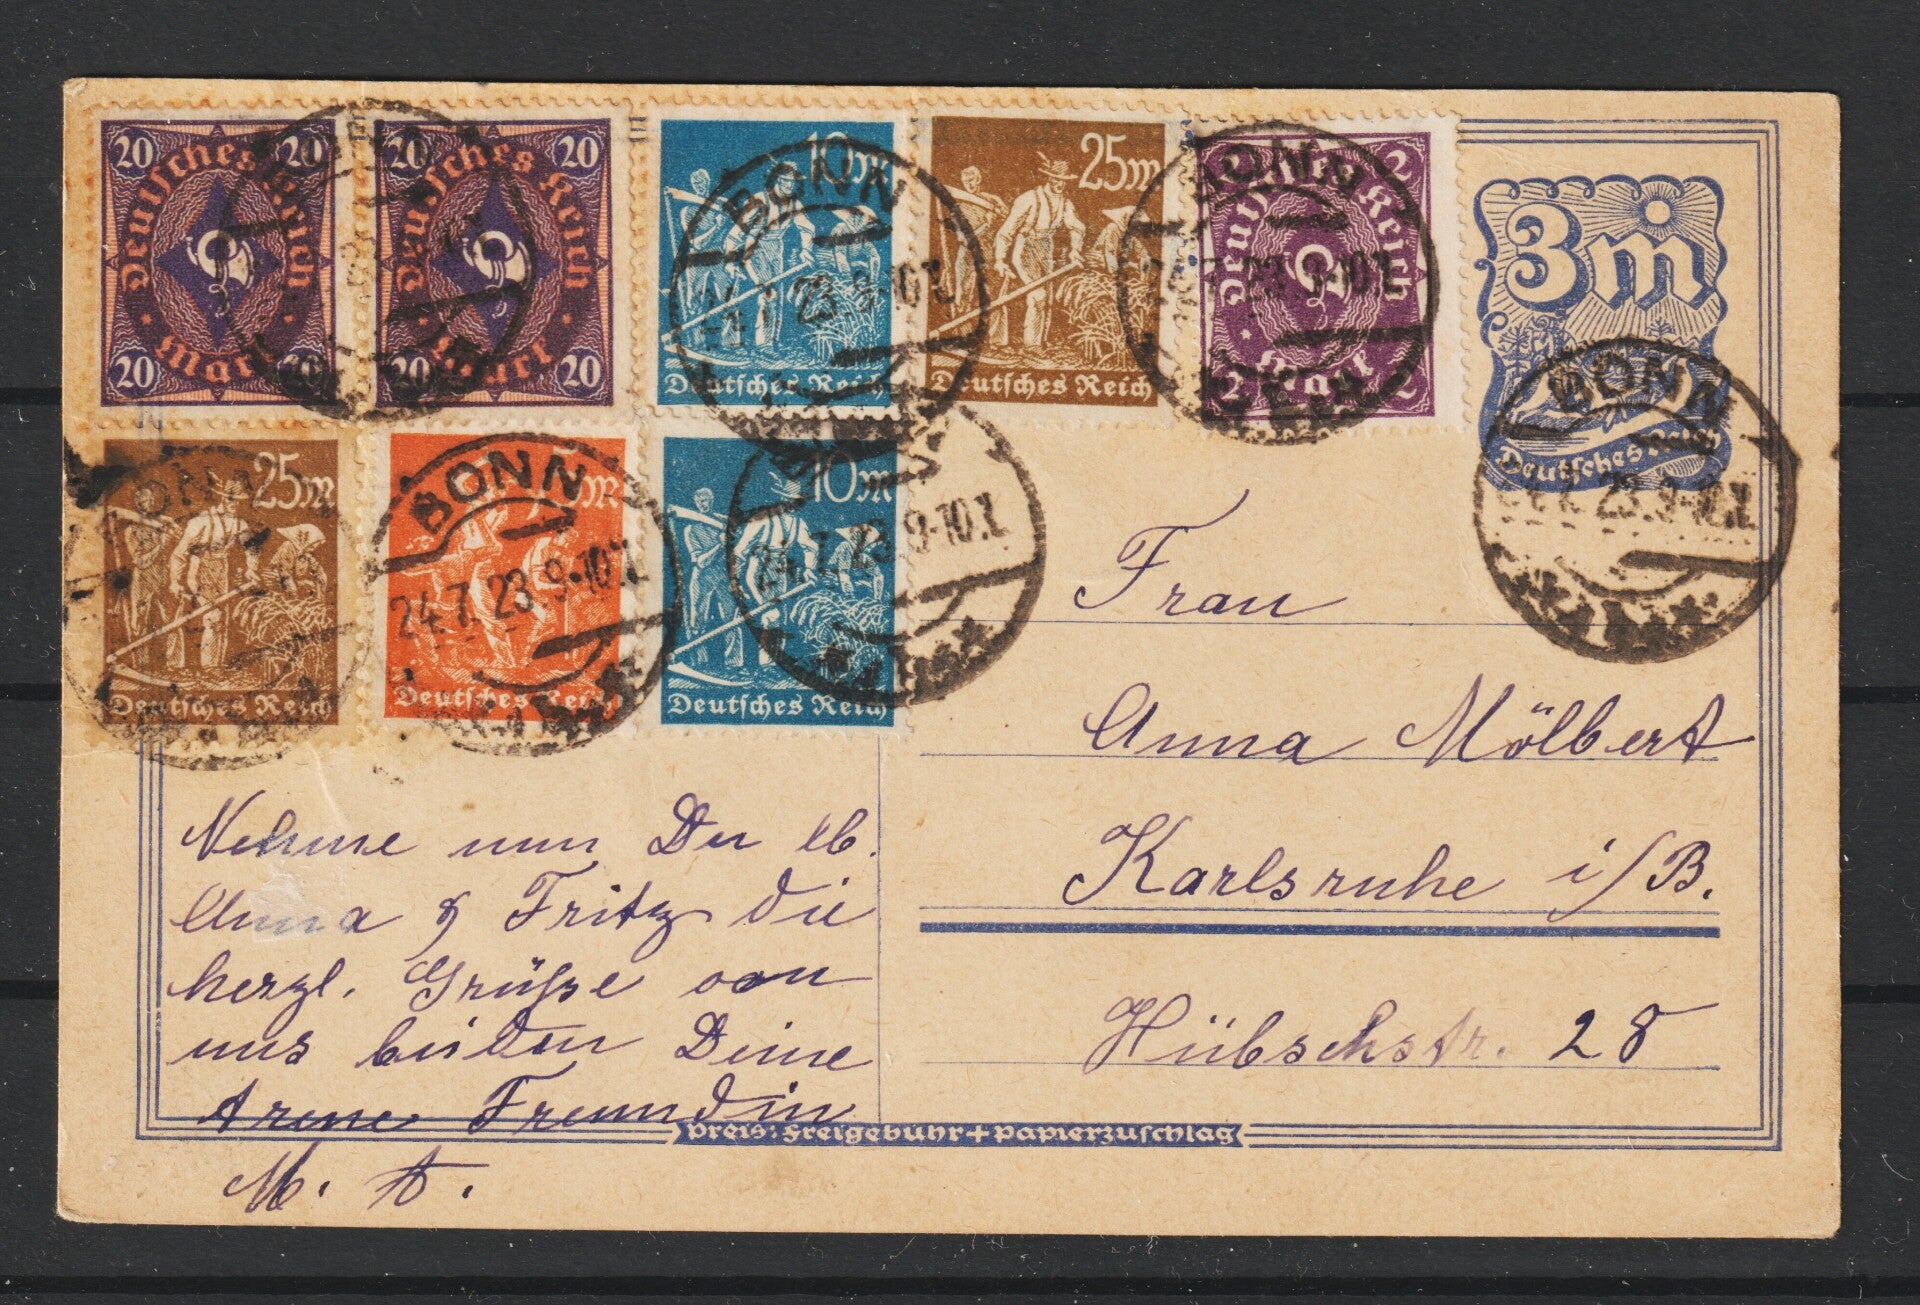 20 20
Deutsches Reich
20 Mark 20
20 20
Deutsches Reich
20 Mark 20
10m
Deutsches Reich
25m
Deutsches Reich
2 2
Deutsches Reich
2 Mark 2
3m
Deutsches Reich
25m
Deutsches Reich
5m
Deutsches Reich
10m
Deutsches Reich
BONN
24.7.23.9-10V.
BONN
24.7.23.9-10V.
BONN
24.7.23.9-10V.
BONN
24.7.23.9-10V.
BONN
24.7.23.9-10V.
BONN
Frau
Anna Mölbert
Karlsruhe i/B.
Hübschstr. 28
Nehme nun Du lb.
Anna & Fritz die
herzl. Grüße von
uns beiden Deine
Freundin
M. A.
Preis: Freigebühr + Papierzuschlag